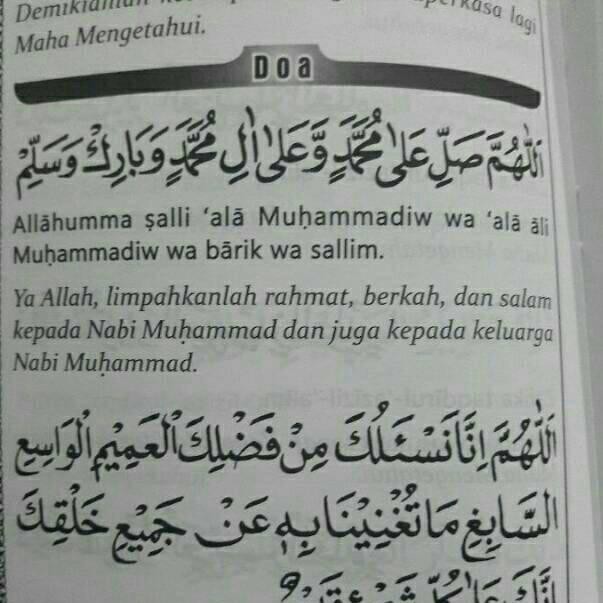 lagi
Maha Mengetahui.
Doa
اَللّٰهُمَّ صَلِّ عَلٰى مُحَمَّدٍ وَّعَلٰى اٰلِ مُحَمَّدٍ وَبَارِكْ وَسَلِّمْ
Allāhumma ṣalli ‘alā Muḥammadiw wa ‘alā āli
Muḥammadiw wa bārik wa sallim.
Ya Allah, limpahkanlah rahmat, berkah, dan salam
kepada Nabi Muḥammad dan juga kepada keluarga
Nabi Muḥammad.
اَللّٰهُمَّ اِنَّا نَسْئَلُكَ مِنْ فَضْلِكَ الْعَمِيْمِ الْوَاسِعِ
السَّابِغِ مَا تُغْنِيْنَا بِهٖ عَنْ جَمِيْعِ خَلْقِكَ